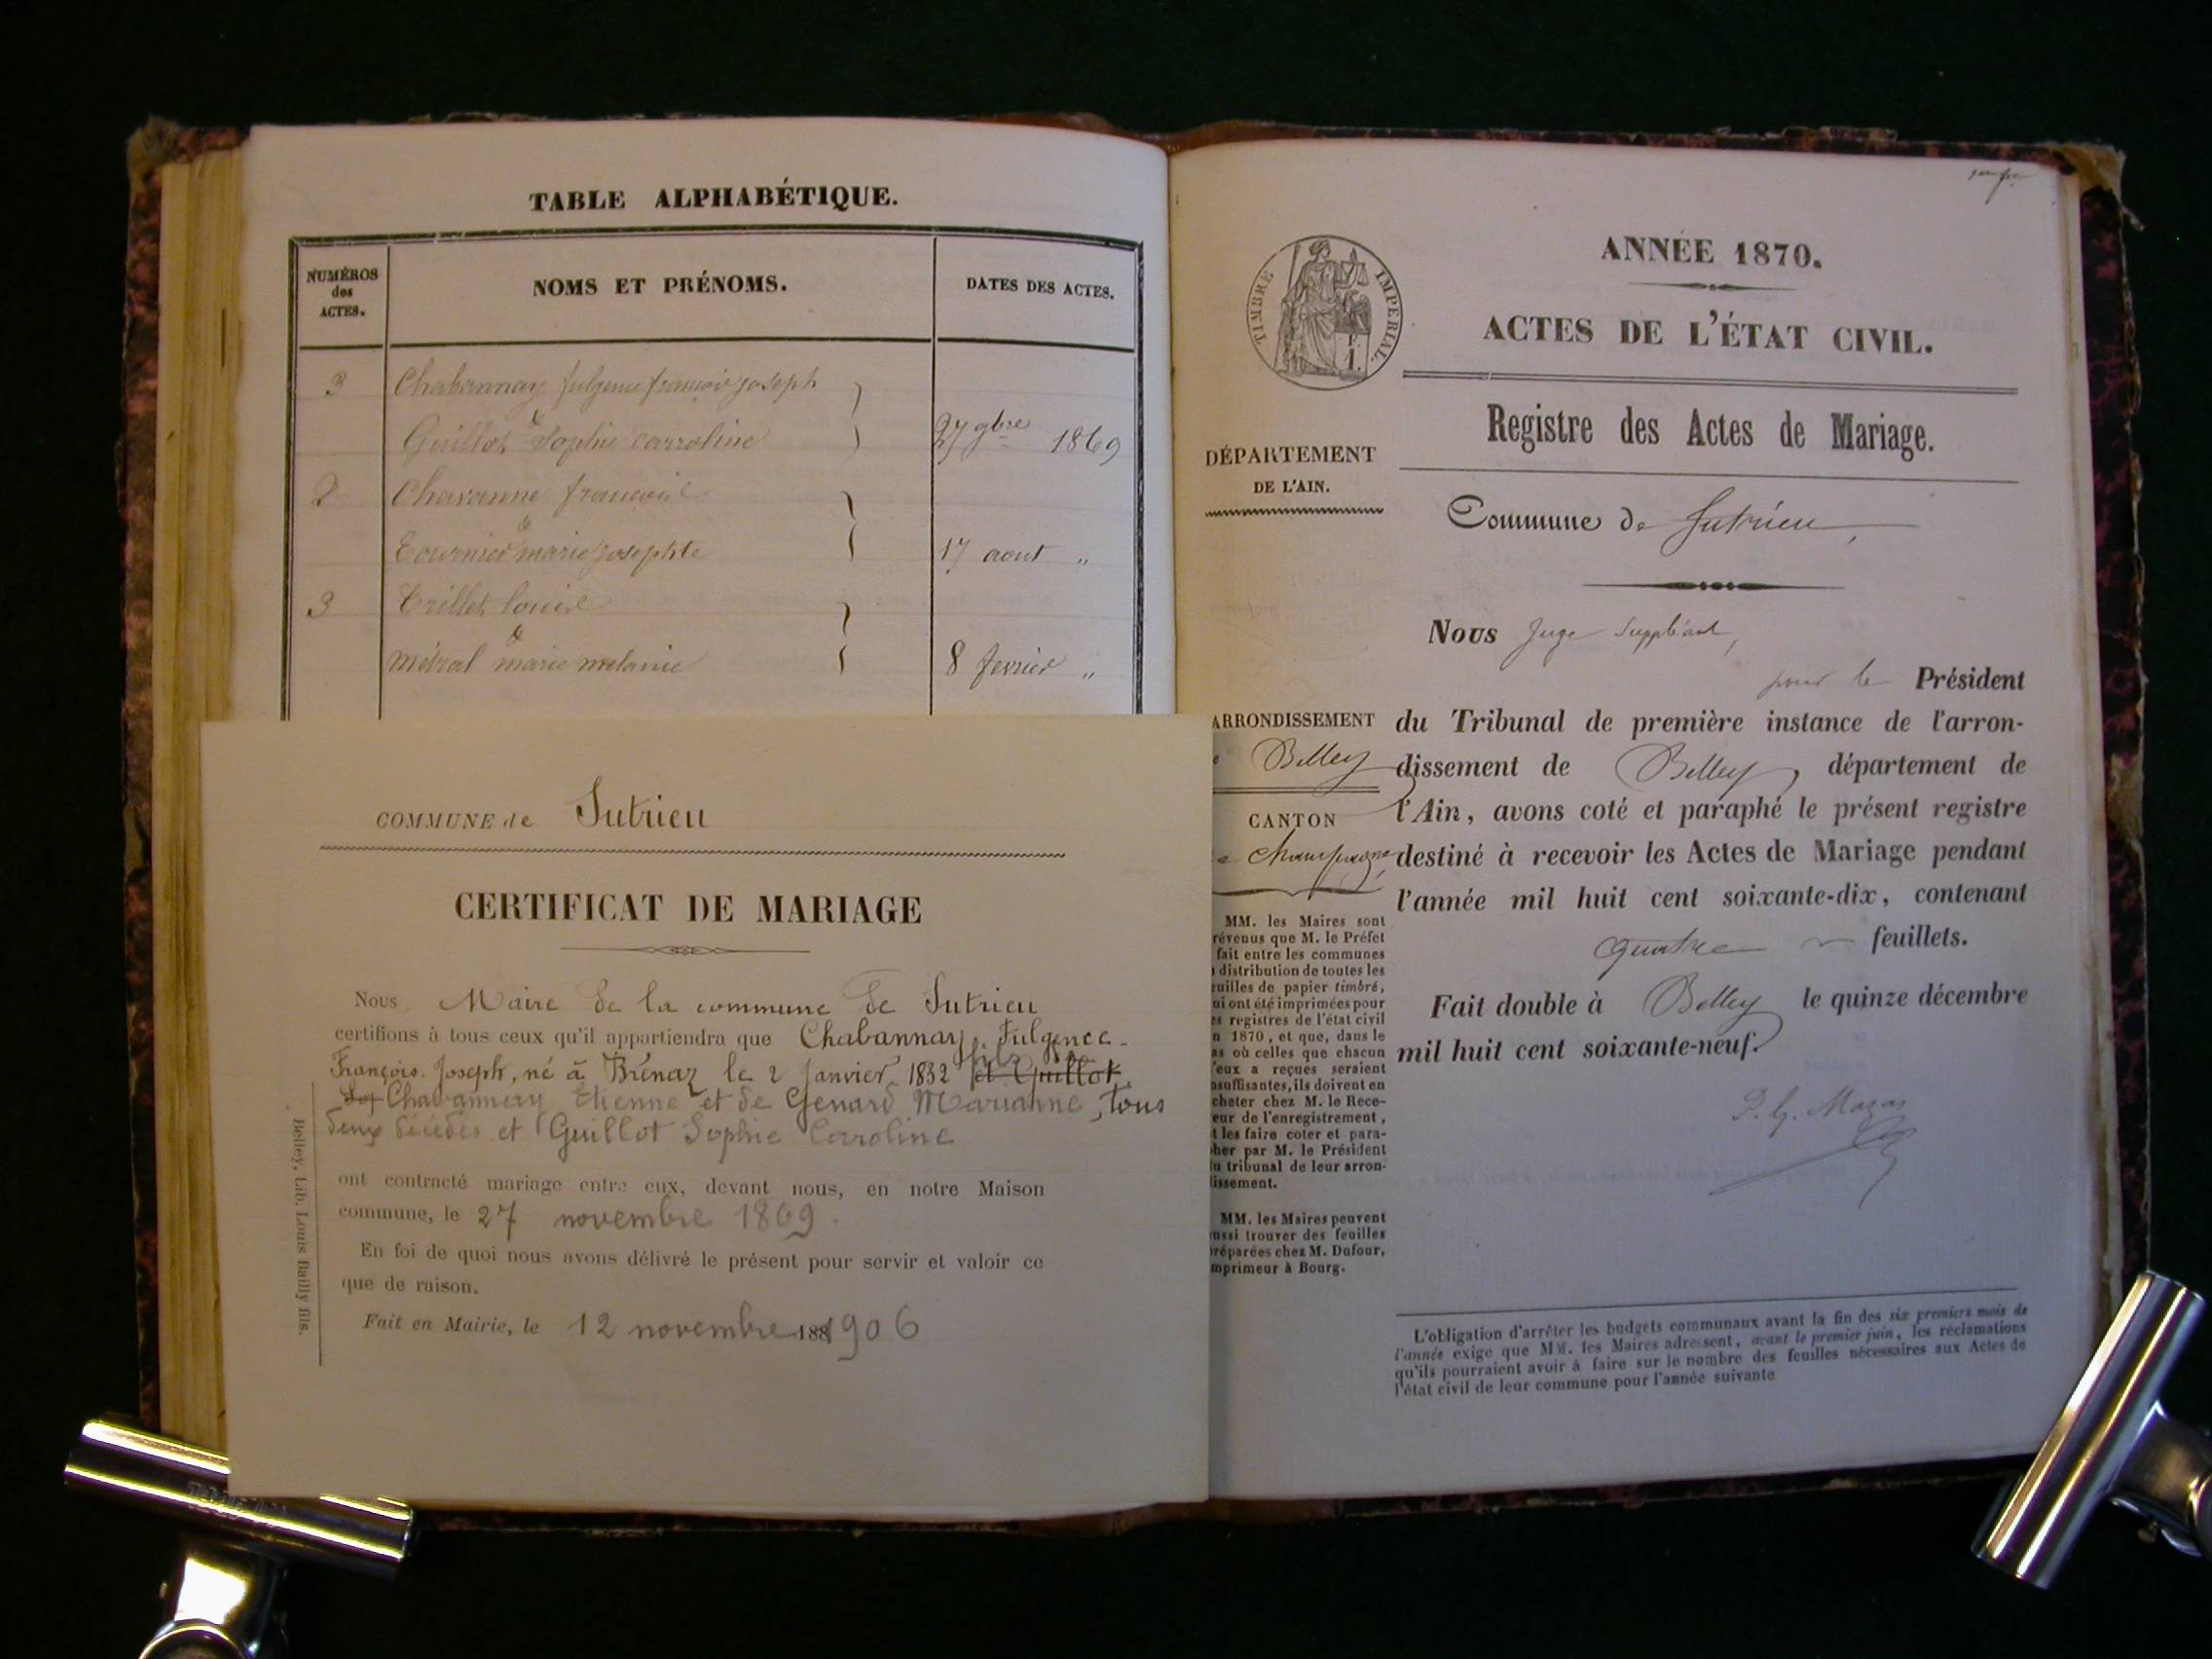 TABLE ALPHABÉTIQUE.
NUMÉROS
des
ACTES.
NOMS ET PRÉNOMS.
DATES DES ACTES.
3 Chabannay fulgence françois joseph
&
Guillot Sophie carroline 27 9bre 1869
2 Chavanne françois
&
Tournier marie josephte 17 aout "
3 Trillet louise
&
métral marie melanie 8 fevrier "
COMMUNE de Sutrieu
CERTIFICAT DE MARIAGE
Nous Maire de la commune de Sutrieu
certifions à tous ceux qu'il appartiendra que Chabannay Fulgence
François Joseph, né à Brénaz le 2 Janvier 1832 fils de et Guillot
Sop Chabannay Etienne et de Genard Marianne, tous
deux décédés et Guillot Sophie Caroline
ont contracté mariage entre eux, devant nous, en notre Maison
commune, le 27 novembre 1869.
En foi de quoi nous avons délivré le présent pour servir et valoir ce
que de raison.
Fait en Mairie, le 12 novembre 1906
Belley, Lib. Louis Bailly fils.
TIMBRE IMPERIAL.
ANNÉE 1870.
ACTES DE L'ÉTAT CIVIL.
Registre des Actes de Mariage.
DÉPARTEMENT
DE L'AIN.
Commune de Sutrieu,
Nous Juge Suppléant,
pour le Président
du Tribunal de première instance de l'arron-
dissement de Belley, département de
l'Ain, avons coté et paraphé le présent registre
destiné à recevoir les Actes de Mariage pendant
l'année mil huit cent soixante-dix, contenant
quatre feuillets.
Fait double à Belley le quinze décembre
mil huit cent soixante-neuf.
ARRONDISSEMENT
Belley
CANTON
Champagne
MM. les Maires sont
révenus que M. le Préfet
fait entre les communes
distribution de toutes les
euilles de papier timbré,
ui ont été imprimées pour
es registres de l'état civil
n 1870, et que, dans le
as où celles que chacun
'eux a reçues seraient
nsuffisantes, ils doivent en
cheter chez M. le Rece-
eur de l'enregistrement,
t les faire coter et para-
her par M. le Président
u tribunal de leur arron-
issement.
MM. les Maires peuvent
ussi trouver des feuilles
réparées chez M. Dufour,
mprimeur à Bourg.
L'obligation d'arrêter les budgets communaux avant la fin des six premiers mois de
l'année exige que MM. les Maires adressent, avant le premier juin, les réclamations
qu'ils pourraient avoir à faire sur le nombre des feuilles nécessaires aux Actes de
l'état civil de leur commune pour l'année suivante